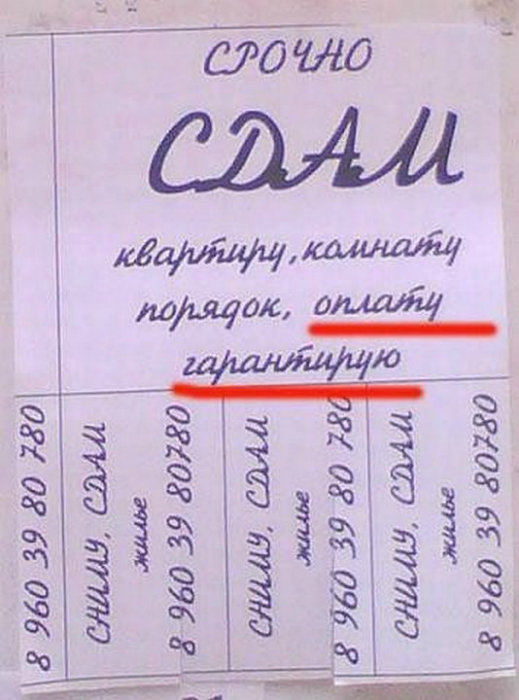 СРОЧНО
СДАМ
квартиру, комнату
порядок, оплату
гарантирую
8 960 39 80 780
СНИМУ, СДАМ
жилье
8 960 39 80780
СНИМУ, СДАМ
жилье
8 960 39 80 780
СНИМУ, СДАМ
жилье
8 960 39 80780